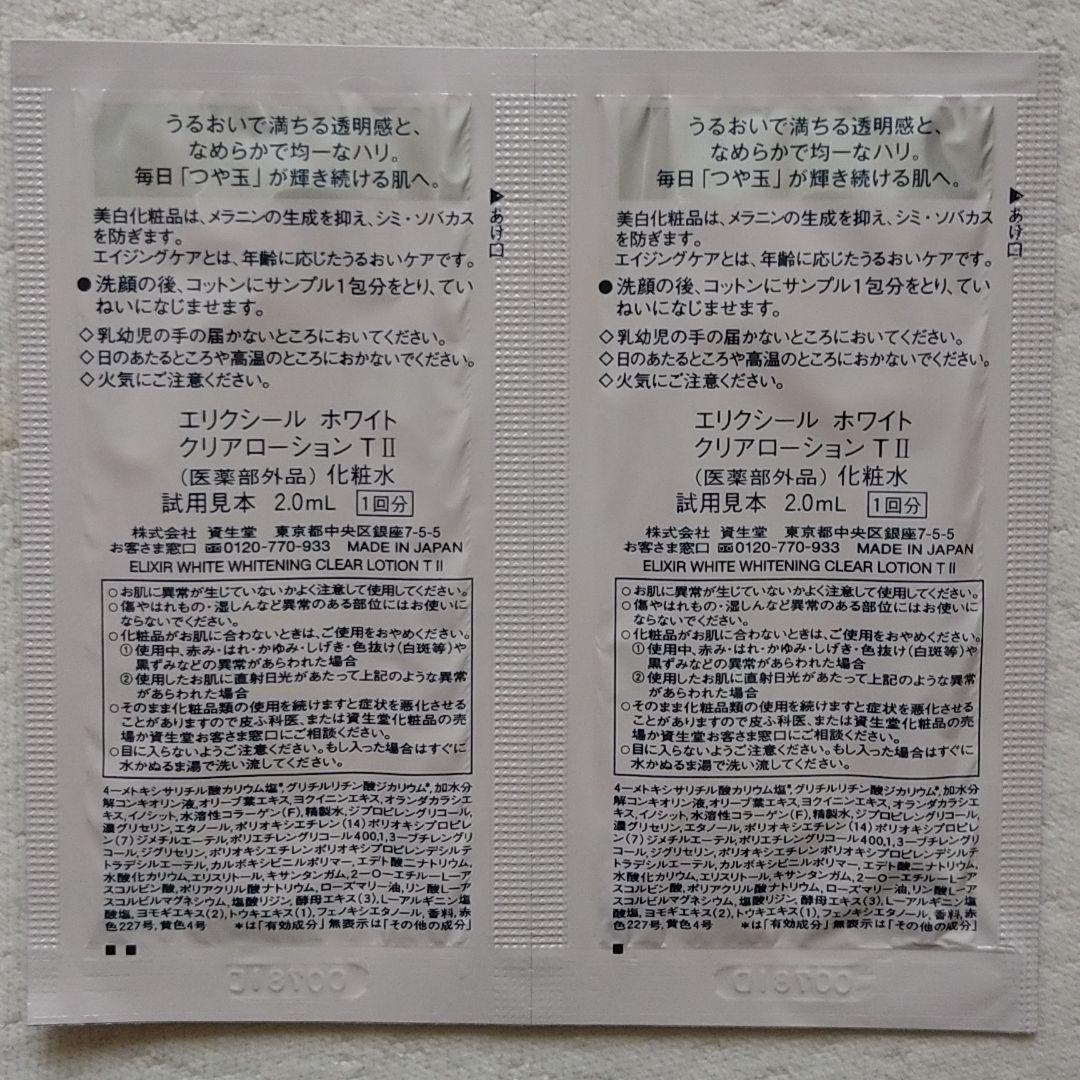 うるおいで満ちる透明感と、
なめらかで均一なハリ。
毎日「つや玉」が輝き続ける肌へ。
美白化粧品は、メラニンの生成を抑え、シミ・ソバカス
を防ぎます。
エイジングケアとは、年齢に応じたうるおいケアです。
●洗顔の後、コットンにサンプル1包分をとり、てい
ねいになじませます。
◇乳幼児の手の届かないところにおいてください。
◇日のあたるところや高温のところにおかないでください。
◇火気にご注意ください。
エリクシール ホワイト
クリアローション T II
(医薬部外品) 化粧水
試用見本 2.0mL 1回分
株式会社 資生堂 東京都中央区銀座7-5-5
お客さま窓口 0120-770-933 MADE IN JAPAN
ELIXIR WHITE WHITENING CLEAR LOTION T II
○お肌に異常が生じていないかよく注意して使用してください。
○傷やはれもの・湿しんなど異常のある部位にはお使いに
ならないでください。
○化粧品がお肌に合わないときは、ご使用をおやめください。
①使用中、赤み・はれ・かゆみ・しげき・色抜け(白斑等)や
黒ずみなどの異常があらわれた場合
②使用したお肌に直射日光があたって上記のような異常
があらわれた場合
○そのまま化粧品類の使用を続けますと症状を悪化させる
ことがありますので皮ふ科医、または資生堂化粧品の売
場か資生堂お客さま窓口にご相談ください。
○目に入らないようご注意ください。もし入った場合はすぐに
水かぬるま湯で洗い流してください。
4-メトキシサリチル酸カリウム塩*,グリチルリチン酸ジカリウム*,加水分
解コンキオリン液,オリーブ葉エキス,ヨクイニンエキス,オランダカラシエ
キス,イノシット,水溶性コラーゲン(F),精製水,ジプロピレングリコール,
濃グリセリン,エタノール,ポリオキシエチレン(14)ポリオキシプロピレ
ン(7)ジメチルエーテル,ポリエチレングリコール400,1,3-ブチレングリ
コール,ジグリセリン,ポリオキシエチレンポリオキシプロピレンデシルテ
トラデシルエーテル,カルボキシビニルポリマー,エデト酸二ナトリウム,
水酸化カリウム,エリスリトール,キサンタンガム,2-O-エチル-L-ア
スコルビン酸,ポリアクリル酸ナトリウム,ローズマリー油,リン酸L-ア
スコルビルマグネシウム,塩酸リジン,酵母エキス(3),L-アルギニン塩
酸塩,ヨモギエキス(2),トウキエキス(1),フェノキシエタノール,香料,赤
色227号,黄色4号 *は「有効成分」無表示は「その他の成分」
▶あけ口
うるおいで満ちる透明感と、
なめらかで均一なハリ。
毎日「つや玉」が輝き続ける肌へ。
美白化粧品は、メラニンの生成を抑え、シミ・ソバカス
を防ぎます。
エイジングケアとは、年齢に応じたうるおいケアです。
●洗顔の後、コットンにサンプル1包分をとり、てい
ねいになじませます。
◇乳幼児の手の届かないところにおいてください。
◇日のあたるところや高温のところにおかないでください。
◇火気にご注意ください。
エリクシール ホワイト
クリアローション T II
(医薬部外品) 化粧水
試用見本 2.0mL 1回分
株式会社 資生堂 東京都中央区銀座7-5-5
お客さま窓口 0120-770-933 MADE IN JAPAN
ELIXIR WHITE WHITENING CLEAR LOTION T II
○お肌に異常が生じていないかよく注意して使用してください。
○傷やはれもの・湿しんなど異常のある部位にはお使いに
ならないでください。
○化粧品がお肌に合わないときは、ご使用をおやめください。
①使用中、赤み・はれ・かゆみ・しげき・色抜け(白斑等)や
黒ずみなどの異常があらわれた場合
②使用したお肌に直射日光があたって上記のような異常
があらわれた場合
○そのまま化粧品類の使用を続けますと症状を悪化させる
ことがありますので皮ふ科医、または資生堂化粧品の売
場か資生堂お客さま窓口にご相談ください。
○目に入らないようご注意ください。もし入った場合はすぐに
水かぬるま湯で洗い流してください。
4-メトキシサリチル酸カリウム塩*,グリチルリチン酸ジカリウム*,加水分
解コンキオリン液,オリーブ葉エキス,ヨクイニンエキス,オランダカラシエ
キス,イノシット,水溶性コラーゲン(F),精製水,ジプロピレングリコール,
濃グリセリン,エタノール,ポリオキシエチレン(14)ポリオキシプロピレ
ン(7)ジメチルエーテル,ポリエチレングリコール400,1,3-ブチレングリ
コール,ジグリセリン,ポリオキシエチレンポリオキシプロピレンデシルテ
トラデシルエーテル,カルボキシビニルポリマー,エデト酸二ナトリウム,
水酸化カリウム,エリスリトール,キサンタンガム,2-O-エチル-L-ア
スコルビン酸,ポリアクリル酸ナトリウム,ローズマリー油,リン酸L-ア
スコルビルマグネシウム,塩酸リジン,酵母エキス(3),L-アルギニン塩
酸塩,ヨモギエキス(2),トウキエキス(1),フェノキシエタノール,香料,赤
色227号,黄色4号 *は「有効成分」無表示は「その他の成分」
▶あけ口